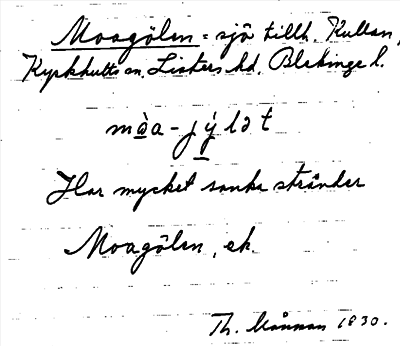 Moagölen = sjö tillh. Kullan,
Kyrkhults sn, Listers hd, Blekinge l.
mòa-jýlət
Har mycket sanka stränder
Moagölen, ek.
Th. Månsson 1930.